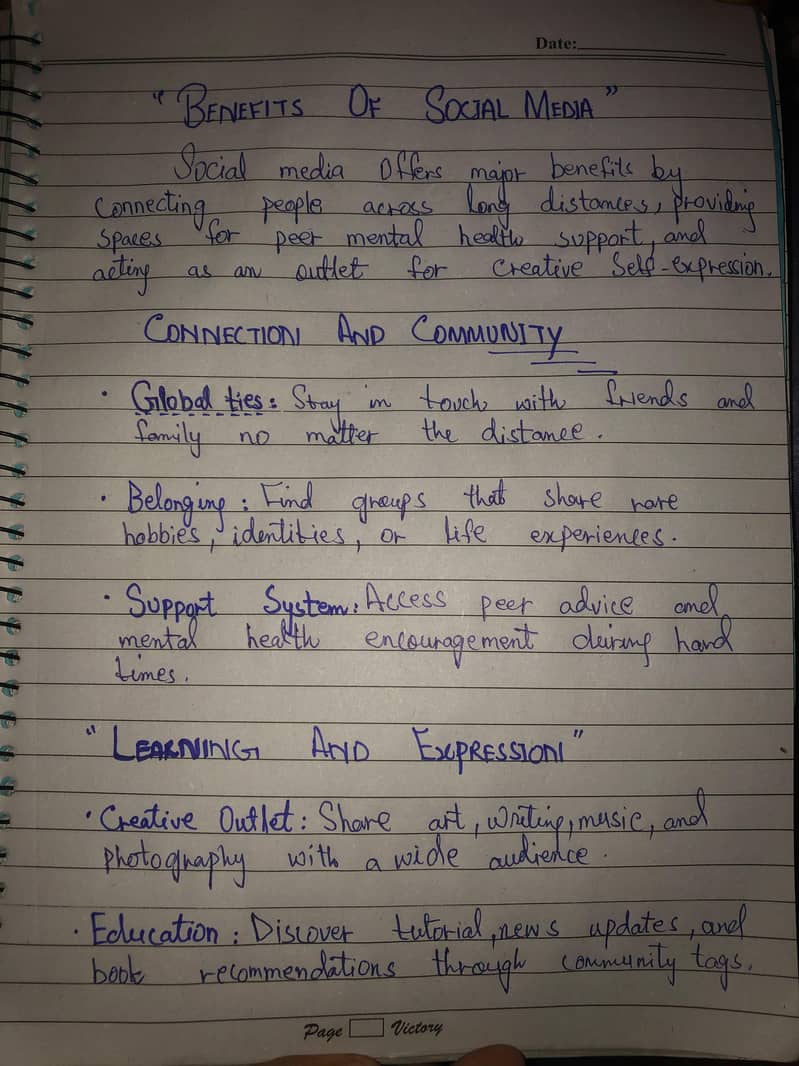 Date:
"BENEFITS OF SOCIAL MEDIA"
Social media offers major benefits by
connecting people across long distances, providing
spaces for peer mental health support, and
acting as an outlet for creative Self-expression.
CONNECTION AND COMMUNITY
• Global ties: Stay in touch with friends and
family no matter the distance.
• Belonging: Find groups that share rare
hobbies, identities, or life experiences.
• Support System: Access peer advice and
mental health encouragement during hard
times.
"LEARNING AND EXPRESSION"
• Creative Outlet: Share art, writing, music, and
photography with a wide audience.
• Education: Discover tutorial, news updates, and
book recommendations through community tags.
Page Victory